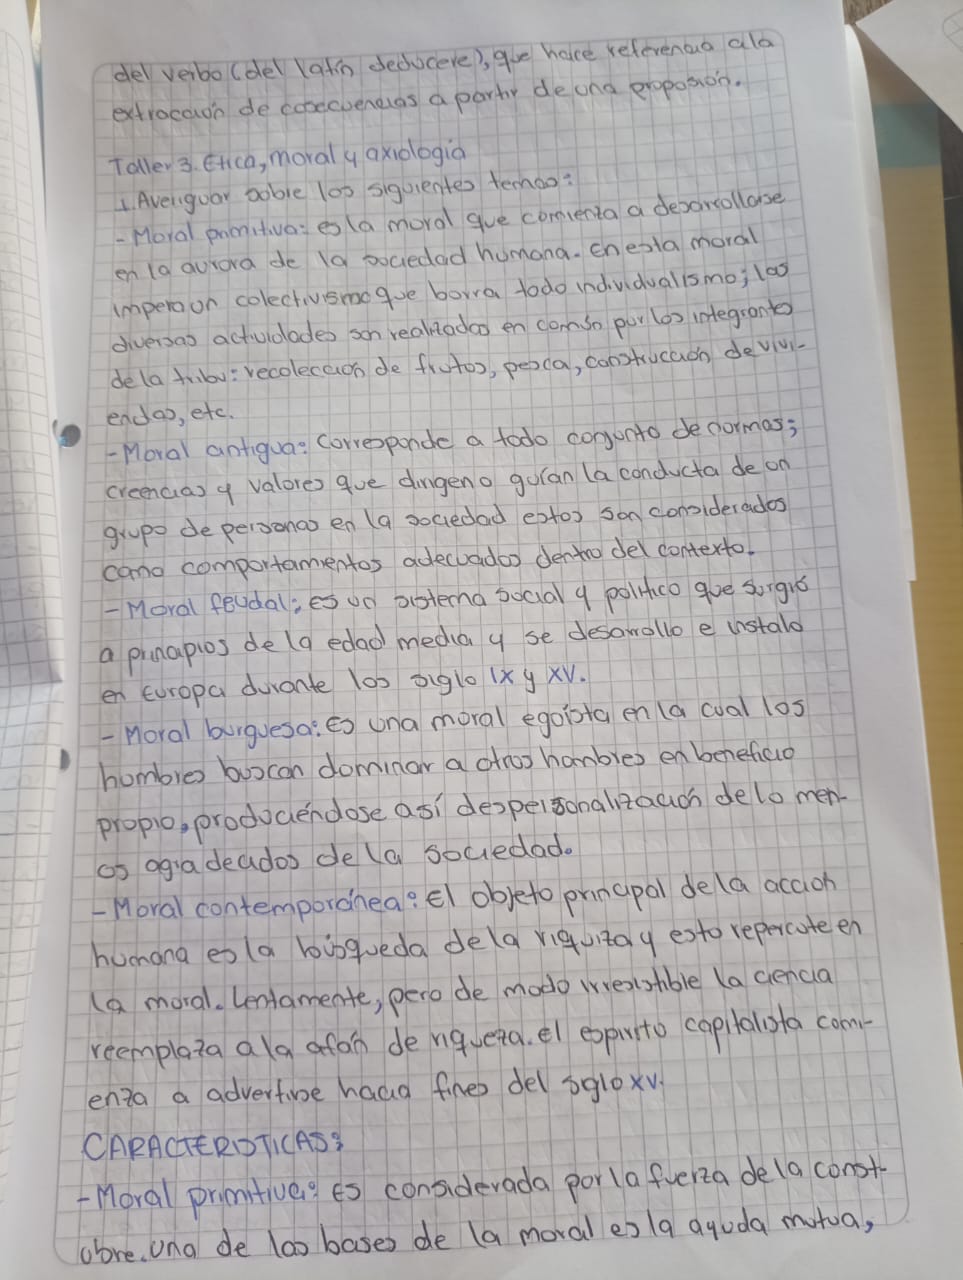 del verbo (del latín deducere), que hace referencia ala
extracción de consecuencias a partir de una proposion.
Taller 3. Etica, moral y axiologia
1. Averiguar sobre los siguientes temas:
- Moral primitiva: es la moral que comienza a desarrollarse
en la aurora de la sociedad humana. En esta moral
impera un colectivismo que borra todo individualismo; las
diversas actividades son realizadas en común por los integrantes
de la tribu: recolección de frutos, pesca, construcción de vivi-
endas, etc.
- Moral antigua: Corresponde a todo conjunto de normas;
creencias y valores que dirigen o guían la conducta de un
grupo de personas en la sociedad estos son considerados
como comportamientos adecuados dentro del contexto.
- Moral feudal: es un sistema social y politico que surgió
a principios de la edad media y se desarrollo e instalo
en Europa durante los siglo IX y XV.
- Moral burguesa: Es una moral egoista en la cual los
hombres buscan dominar a otros hombres en beneficio
propio, produciéndose así despersonalización de lo men-
os agradecidos de la sociedad.
- Moral contemporánea: El objeto principal de la acción
humana es la búsqueda de la riquiza y esto repercute en
la moral. Lentamente, pero de modo irresistible la ciencia
reemplaza a la afán de riqueza. el espirito capitalista comi-
enza a advertirse hacia fines del siglo XV.
CARACTERISTICAS:
- Moral primitiva: Es considerada por la fuerza de la const-
ubre. Una de las bases de la moral es la ayuda mutua,